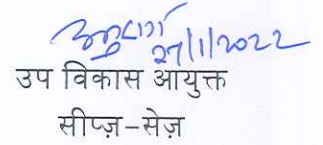 27/1/2022
उप विकास आयुक्त
सीप्ज़-सेज़